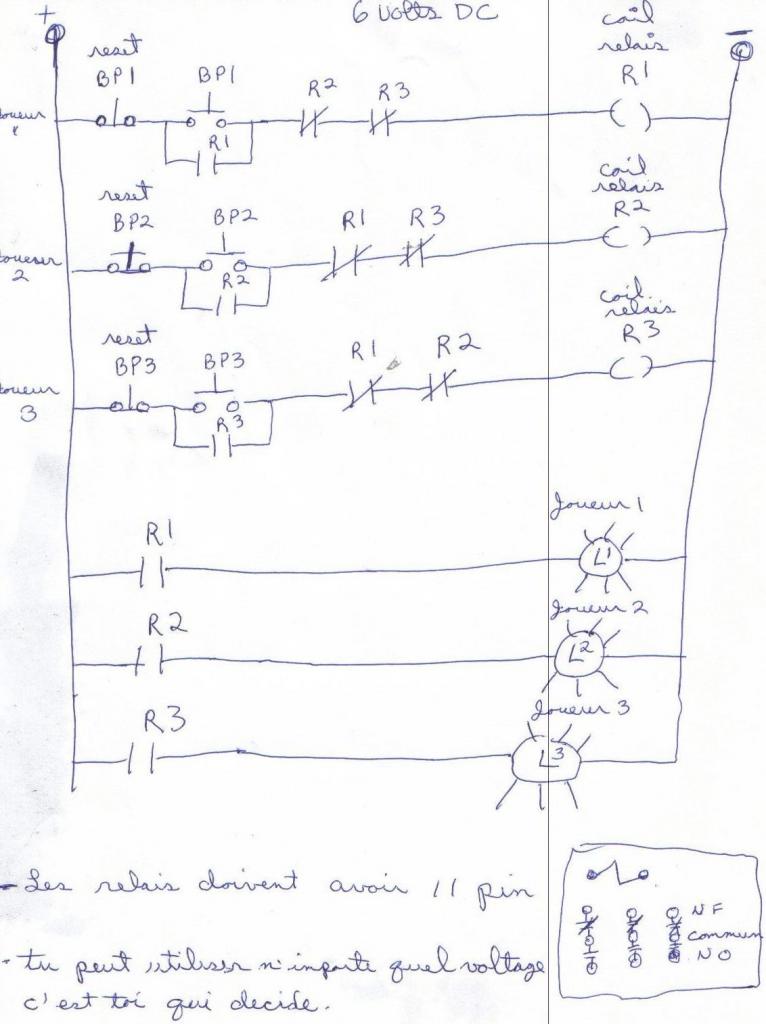 + 6 Volts DC -
coil
relais
R1
reset
BP1 BP1 R2 R3
R1
coil
relais
R2
reset
BP2 BP2 R1 R3
2
R2
coil
relais
R3
reset
BP3 BP3 R1 R2
3
R3
Joueur 1
R1
L1
Joueur 2
R2
L2
Joueur 3
R3
L3
- Les relais doivent avoir 11 pin
NF
commun
NO
- tu peut utiliser n'importe quel voltage
c'est toi qui decide.